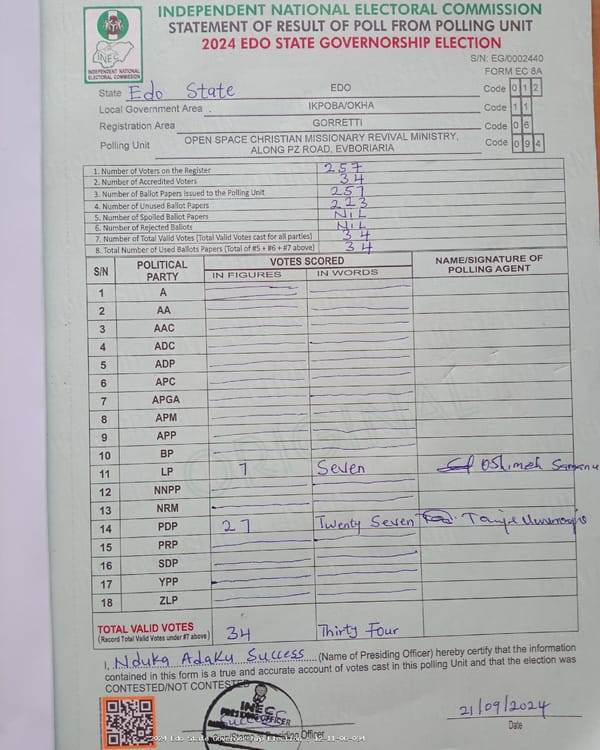 INDEPENDENT NATIONAL ELECTORAL COMMISSION
STATEMENT OF RESULT OF POLL FROM POLLING UNIT
2024 EDO STATE GOVERNORSHIP ELECTION
INEC
INDEPENDENT NATIONAL ELECTORAL COMMISSION
S/N: EG/0002440
FORM EC 8A
State Edo State EDO Code 0 1 2
Local Government Area . IKPOBA/OKHA Code 1 1
Registration Area GORRETTI Code 0 6
Polling Unit OPEN SPACE CHRISTIAN MISSIONARY REVIVAL MINISTRY, ALONG PZ ROAD, EVBORIARIA Code 0 9 4
1. Number of Voters on the Register 257
2. Number of Accredited Voters 34
3. Number of Ballot Papers Issued to the Polling Unit 257
4. Number of Unused Ballot Papers 223
5. Number of Spoiled Ballot Papers NIL
6. Number of Rejected Ballots NIL
7. Number of Total Valid Votes (Total Valid Votes cast for all parties) 34
8. Total Number of Used Ballots Papers (Total of #5 + #6 + #7 above) 34
S/N POLITICAL PARTY VOTES SCORED NAME/SIGNATURE OF POLLING AGENT
IN FIGURES IN WORDS
1 A
2 AA
3 AAC
4 ADC
5 ADP
6 APC
7 APGA
8 APM
9 APP
10 BP
11 LP 7 Seven Oshimeh
12 NNPP
13 NRM
14 PDP 27 Twenty Seven
15 PRP
16 SDP
17 YPP
18 ZLP
ORIGINAL
TOTAL VALID VOTES 34 Thirty Four
(Record Total Valid Votes under #7 above)
I, Nduka Adaku Success (Name of Presiding Officer) hereby certify that the information
contained in this form is a true and accurate account of votes cast in this polling Unit and that the election was
CONTESTED/NOT CONTESTED
INEC
PRESIDING OFFICER
Presiding Officer
21/09/2024
Date